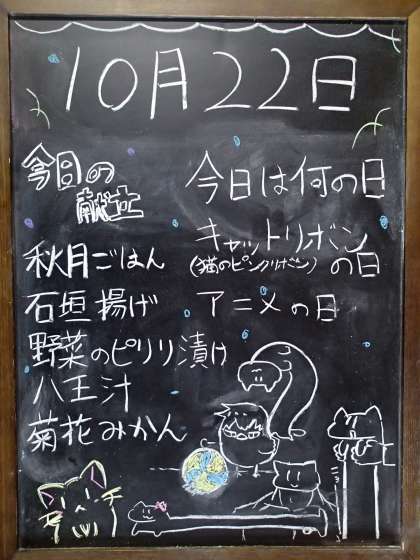 10月22日
今日の
献立
秋月ごはん
石垣揚げ
野菜のピリリ漬け
八王汁
菊花みかん
今日は何の日
キャットリボン
(猫のピンクリボン)の日
アニメの日